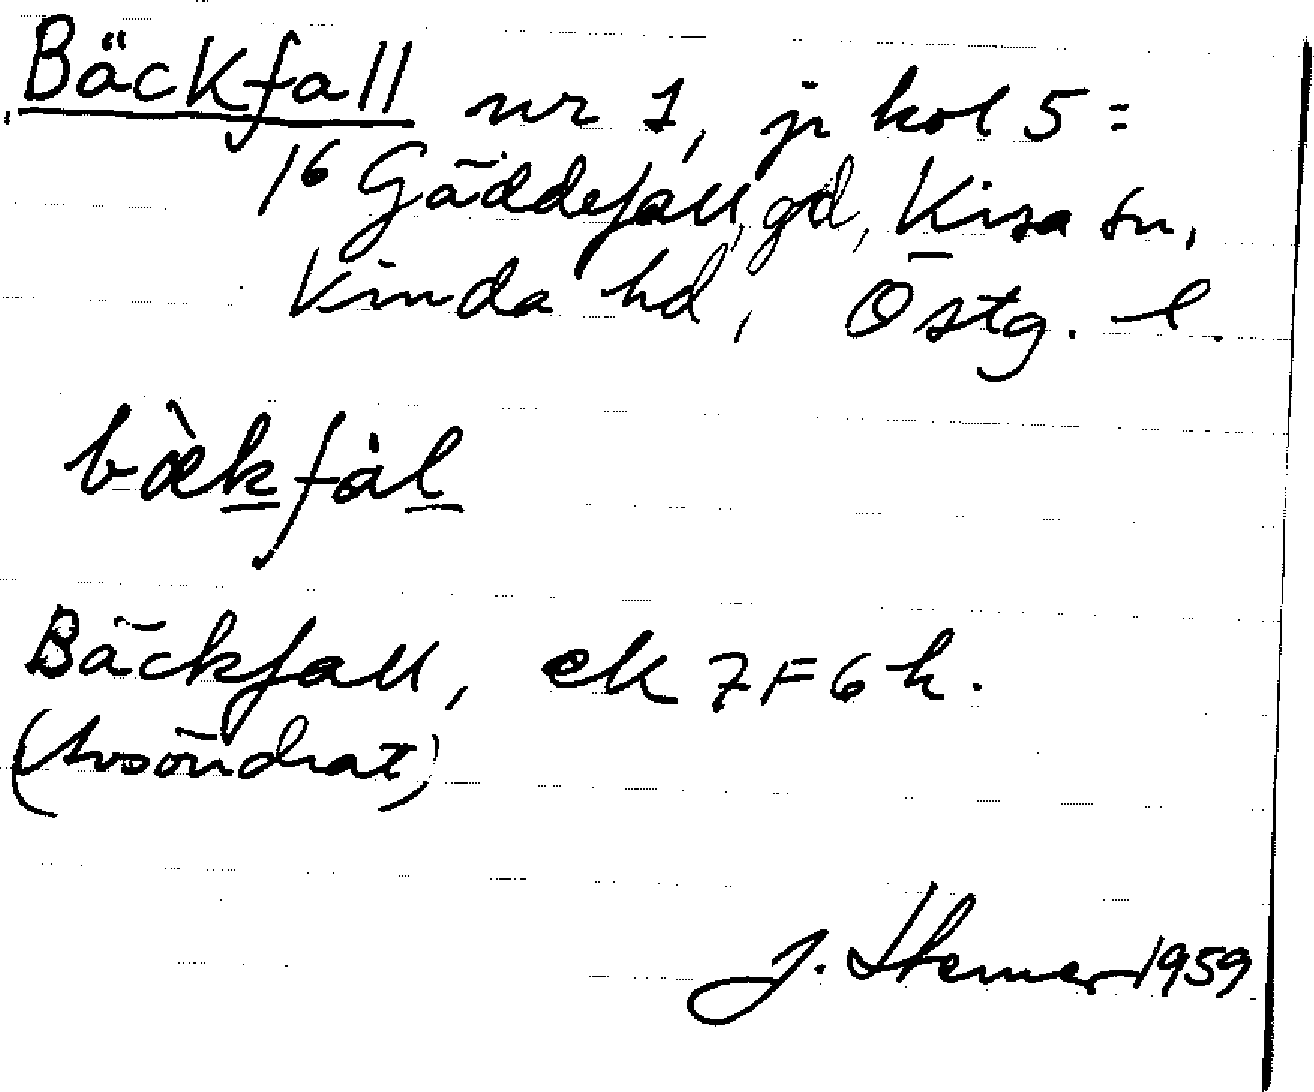 Bäckfall nr 1, jr kol 5 =
1⁶ Gäddefall, gd, Kisa sn,
Kinda hd, Östg. l.
bæ̀kfàl
Bäckfall, ek 7F6h.
(Avsöndrat)
J. 1959